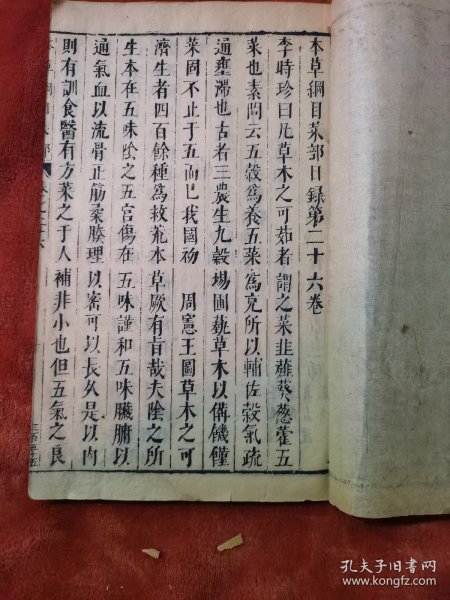 本草綱目菜部目録第二十六卷
李時珍曰凡草木之可茹者謂之菜韭薤葵葱藿五
菜也素問云五穀爲養五菜爲充所以輔佐穀氣疏
通壅滯也古者三農生九穀場圃蓺草木以備饑饉
菜固不止于五而已我國初 周憲王圖草木之可
濟生者四百餘種爲救荒本草厥有旨哉夫陰之所
生本在五味陰之五宮傷在五味謹和五味臟腑以
通氣血以流骨正筋柔腠理以密可以長久是以内
則有訓食醫有方菜之于人補非小也但五氣之良
二百五五
孔夫子旧书网
www.kongfz.com